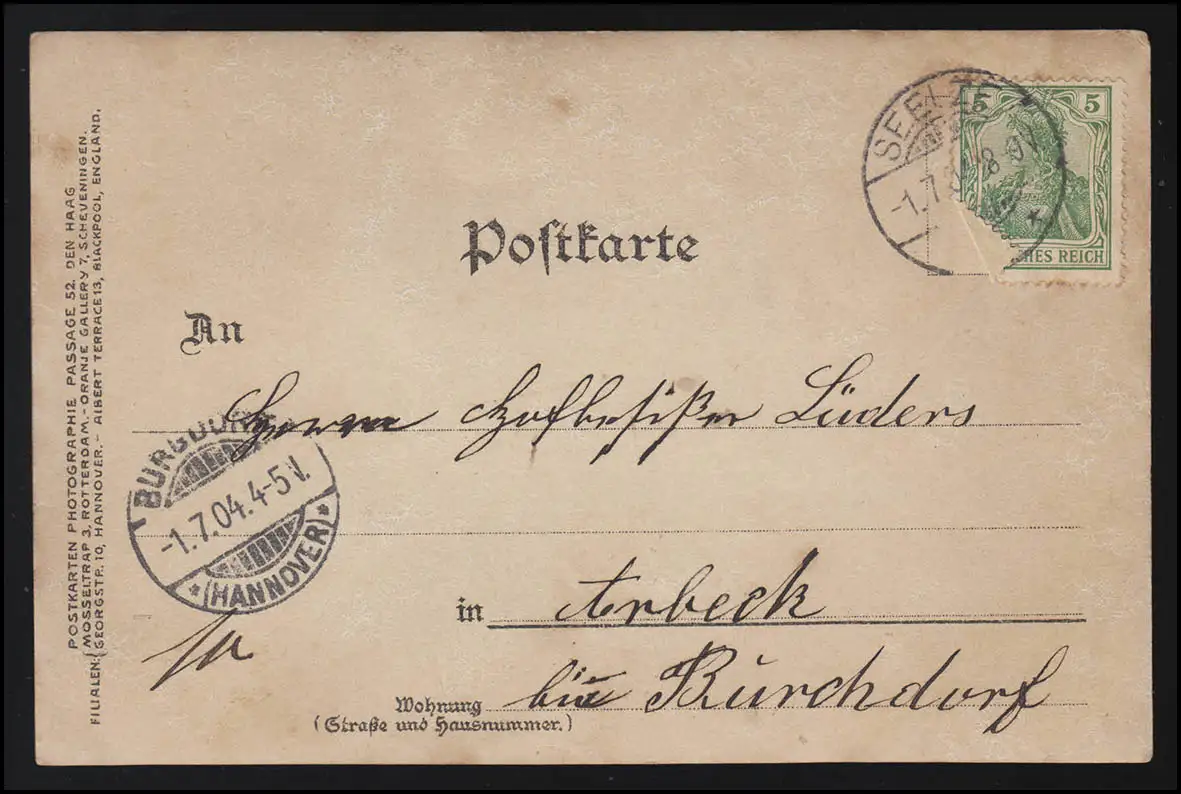 POSTKARTEN PHOTOGRAPHIE PASSAGE 52. DEN HAAG
MOSSELTRAP 3, ROTTERDAM.- ORANJE GALLERY 7, SCHEVENINGEN.
FILIALEN: GEORGSTR. 10, HANNOVER.- ALBERT TERRACE 13, BLACKPOOL, ENGLAND.
SEELZE
-1.7.
5 5
CHES REICH
Postkarte
An
Herrn Hofbesitzer Lüders
BURGDORF
-1.7.04.4-5V.
* (HANNOVER) *
in Arbeck
bei Burchdorf
Wohnung
(Straße und Hausnummer.)